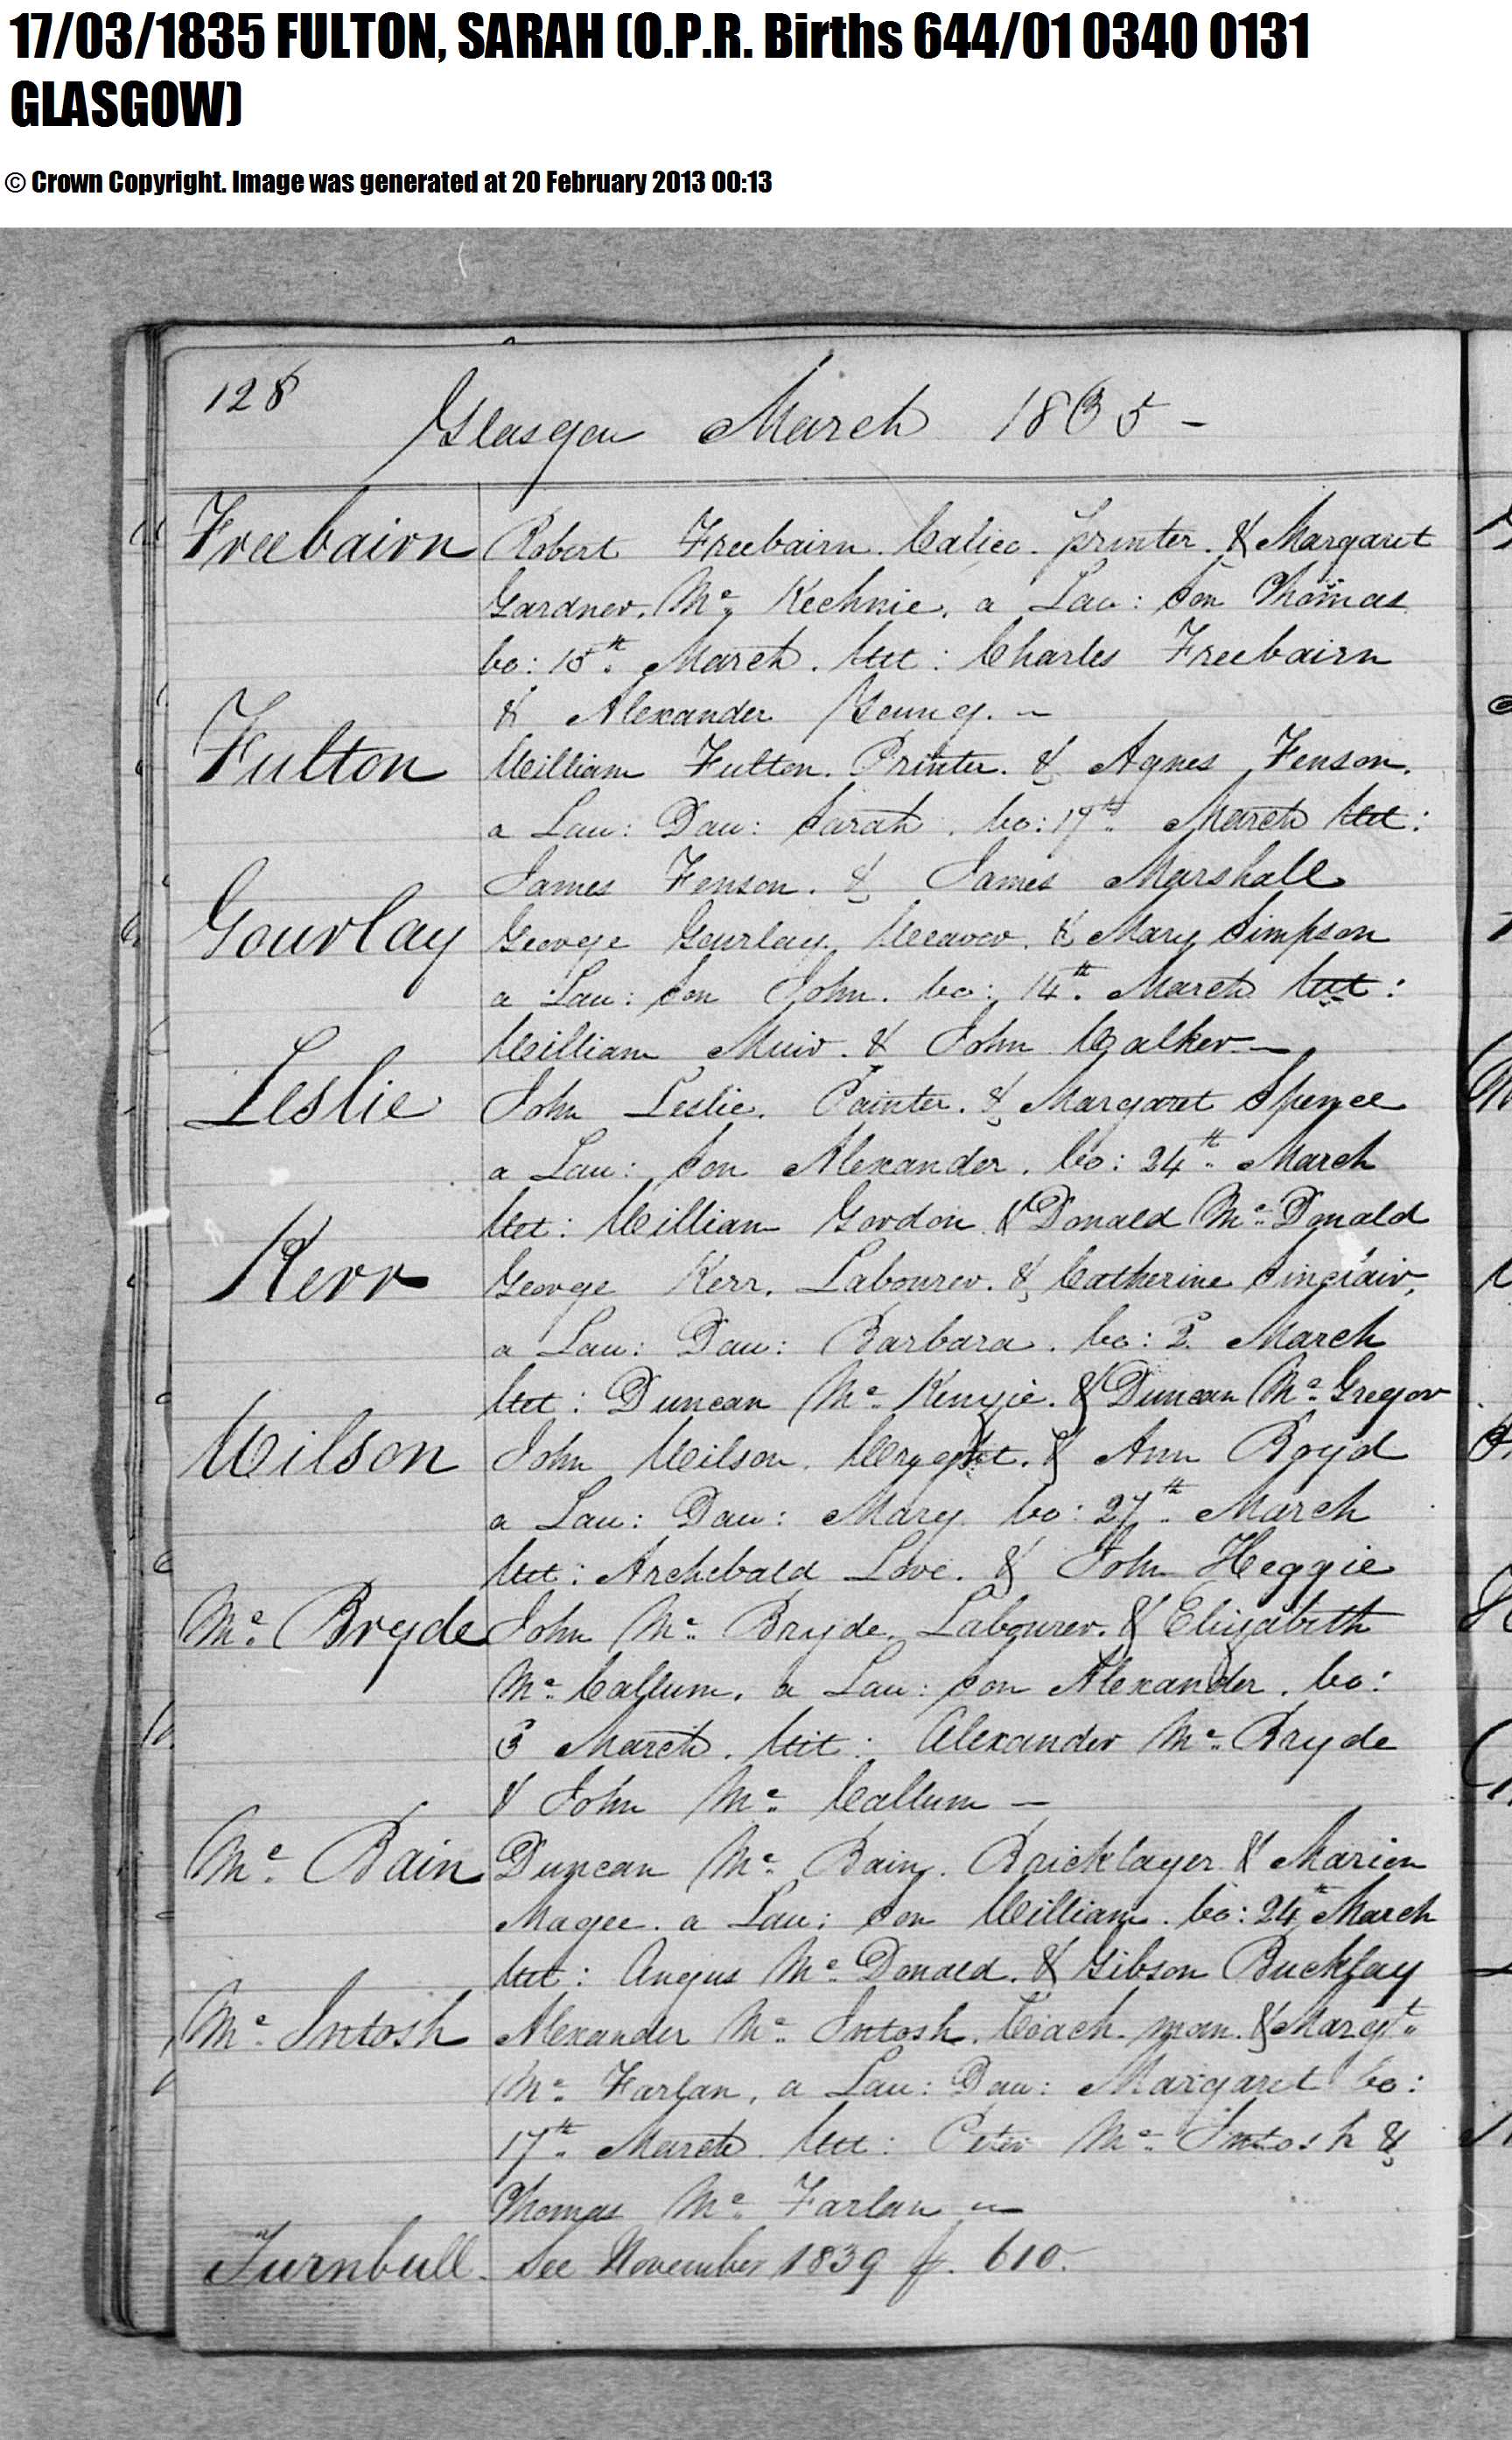 17/03/1835 FULTON, SARAH (O.P.R. Births 644/01 0340 0131
GLASGOW)
© Crown Copyright. Image was generated at 20 February 2013 00:13
128
Glasgow March 1835 -
Freebairn Robert Freebairn. Calico. printer. & Margaret
Gardner. Mc. Kechnie. a Law: Son Thomas
bo: 15th. March. Wit: Charles Freebairn
& Alexander Young. -
Fulton William Fulton. Printer. & Agnes Fenson.
a Law: Dau: Sarah. bo: 17th. March Wit:
James Fenson. & James Marshall
Gourlay George Gourlay. Weaver. & Mary Simpson
a Law: Son John. bo: 14th. March Wit:
William Muir. & John Walker -
Leslie John Leslie. Painter. & Margaret Spence
a Law: Son Alexander. bo: 24th. March
Wit: William Gordon & Donald Mc. Donald
Kerr George Kerr. Labourer. & Catherine Sinclair,
a Law: Dau: Barbara. bo: 2d. March
Wit: Duncan Mc. Kenzie. & Duncan Mc. Gregor
Wilson John Wilson. Wryght. & Ann Boyd
a Law: Dau: Mary. bo: 27th. March
Wit: Archebald Love. & John Heggie
Mc. Bryde John Mc. Bryde. Labourer. & Elizabeth
Mc. Callum. a Law: Son Alexander. bo:
3 March. Wit: Alexander Mc. Bryde
& John Mc. Callum -
Mc. Bain Duncan Mc. Bain. Bricklayer & Marion
Magee. a Law: Son William. bo: 24th March
Wit: Angus Mc. Donald. & Gibson Bucklay
Mc. Intosh Alexander Mc. Intosh. Coach-man. & Margt.
Mc. Farlan, a Law: Dau: Margaret bo:
17th. March. Wit: Peter Mc. Intosh &
Thomas Mc. Farlan -
Turnbull. See November 1839 f. 610.